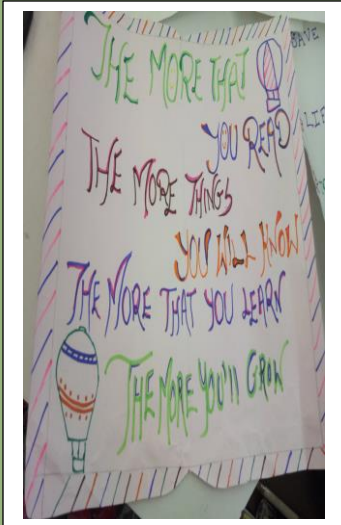 THE MORE THAT
YOU READ
THE MORE THINGS
YOU WILL KNOW
THE MORE THAT YOU LEARN
THE MORE YOU'll GROW